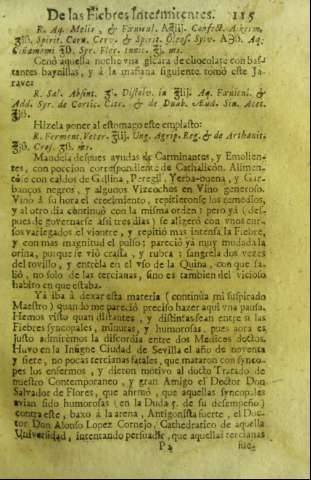 De las Fiebres Intermitentes. 115
R. Aq. Melis, & Fœnicul. Confect. Alkerm.
Spirit. Corn. Cerv. & Spirit. Syr. Aq.
Cinamomi Syr. Flor. tunic. ms.
Cenò aquella noche una gicara de chocolate con bas-
tantes baynillas, y à la mañana siguiente tomò este Ja-
rave:
R. Sal. Absint. Dissolv. in Aq. Fœnicul. &
Add. Syr. de Cortic. Citr. & de Duab. Sin. Acet.
Hizela poner al estomago este emplasto:
R. Ferment. Veter. Ung. Agrip. Reg. & de Arthanit.
Croj. ms.
Mandela despues ayudas de Carminantes, y Emolien-
tes, con porcion correspondiente de Catholicòn. Alimen-
tòse con caldos de Gallina, Peregil, Yerba-buena, y Gar-
banços negros, y algunos Vizcochos en Vino generoso.
Vino à su hora el crecimiento, repitieronse los remedios,
y al otro dia continuò con la misma orden; pero yà (des-
pues de governarse assi tres dias) se aligerò con unos cur-
sos variegados el vientre, y repitiò mas intensa la Fiebre,
y con mas magnitud el pulso; pareciò yà muy mudada la
orina, porque se viò crassa, y rubra; sangrela dos vezes
del tovillo, y entrèla en el uso de la Quina, con que sa-
liò, no solo de las tercianas, sino es tambien del vicioso
habito en que estaba.
Yà iba à dexar esta materia (continua mi suspirado
Maestro) quando me pareciò preciso hazer aqui una pausa.
Hemos visto quan distantes, y distintas sean entre si las
Fiebres syncopales, minutas, y humorosas, pues aora es
justo admiremos la discordia entre dos Medicos doctos.
Huvo en la Insigne Ciudad de Sevilla el año de noventa
y siete, no pocas tercianas fatales, que mataron con synco-
pes los enfermos, y dieron motivo al docto Tratado de
nuestro Contemporaneo, y gran Amigo el Doctor Don
Salvador de Flores, que afirmò, que aquellas syncopales
avian sido humorosas (en la Duda 5. de su desempeño)
contra este, baxò à la arena, Antigonista fuerte, el Doc-
tor Don Alonso Lopez Cornejo, Cathedratico de aquella
Universidad, intentando persuadir, que aquellas tercianas
P 2 fue-